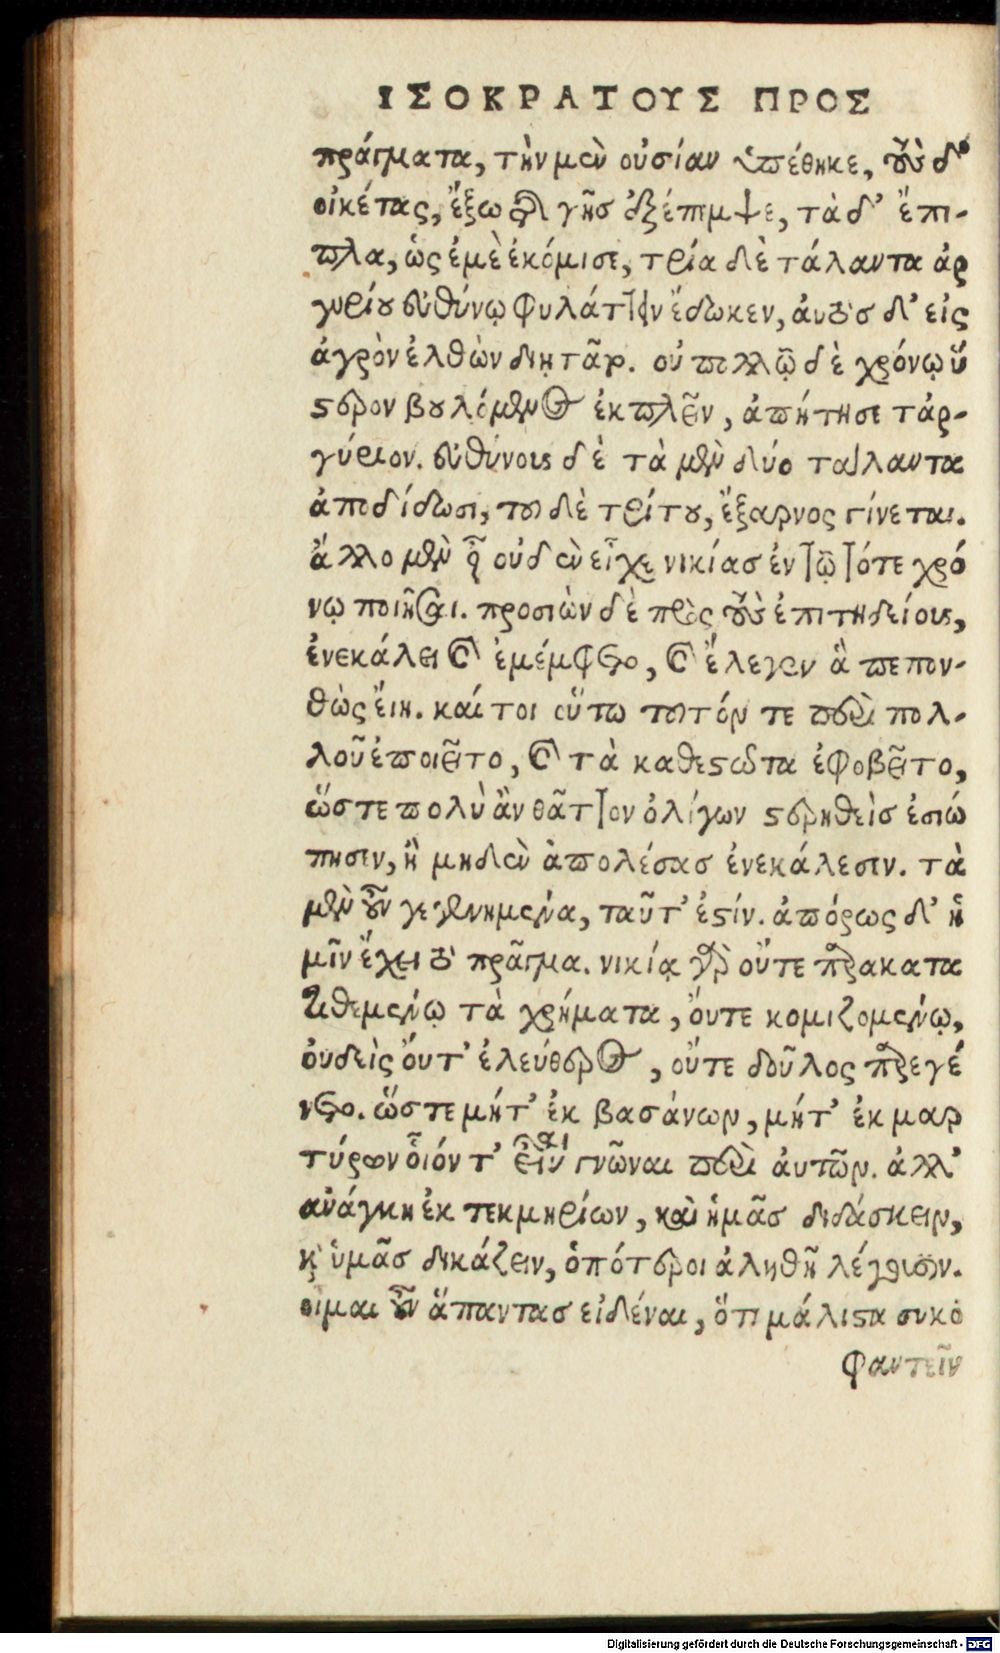 ΙΣΟΚΡΑΤΟΥΣ ΠΡΟΣ
πράγματα, τὴν μὲν οὐσίαν ὑπέθηκε, τοὺς δ'
οἰκέτας, ἔξω τῆς γῆς ἐξέπεμψε, τὰ δ' ἔπι-
πλα, ὡς ἐμὲ ἐκόμισε, τρία δὲ τάλαντα ἀρ
γυρίου εὐθύνῳ φυλάττειν ἔδωκεν, αὐτὸς δ' εἰς
ἀγρὸν ἐλθὼν διῃτᾶτο. οὐ πολλῷ δὲ χρόνῳ ὕ
στερον βουλόμενος ἐκπλεῖν, ἀπῄτησε τἀρ-
γύριον. εὐθύνους δὲ τὰ μὲν δύο τάλαντα
ἀποδίδωσι, τοῦ δὲ τρίτου, ἔξαρνος γίνεται.
ἄλλο μὲν οὖν οὐδὲν εἶχε νικίας ἐν τῷ τότε χρό
νῳ ποιῆσαι. προσιὼν δὲ πρὸς τοὺς ἐπιτηδείους,
ἐνεκάλει καὶ ἐμέμφετο, καὶ ἔλεγεν ἃ πεπον-
θὼς εἴη. καί τοι οὕτω τοῦτόν τε περὶ πολ-
λοῦ ἐποιεῖτο, καὶ τὰ καθεστῶτα ἐφοβεῖτο,
ὥστε πολὺ ἂν θᾶττον ὀλίγων στερηθεὶς ἐσιώ
πησιν, ἢ μηδὲν ἀπολέσας ἐνεκάλεσιν. τὰ
μὲν οὖν γεγενημένα, ταῦτ' ἐστίν. ἀπόρως δ' ἡ
μῖν ἔχει τὸ πρᾶγμα. νικίᾳ γὰρ οὔτε παρακατα
τιθεμένῳ τὰ χρήματα, οὔτε κομιζομένῳ,
οὐδεὶς οὔτ' ἐλεύθερος, οὔτε δοῦλος παρεγέ
νετο. ὥστε μήτ' ἐκ βασάνων, μήτ' ἐκ μαρ
τύρων οἷόν τ' εἶναι γνῶναι περὶ αὐτῶν. ἀλλ'
ἀνάγκη ἐκ τεκμηρίων, καὶ ἡμᾶς διδάσκειν,
κὶ ὑμᾶς δικάζειν, ὁπότεροι ἀληθῆ λέγουσιν.
οἶμαι οὖν ἅπαντας εἰδέναι, ὅτι μάλιστα συκο
φαντεῖν
Digitalisierung gefördert durch die Deutsche Forschungsgemeinschaft - DFG